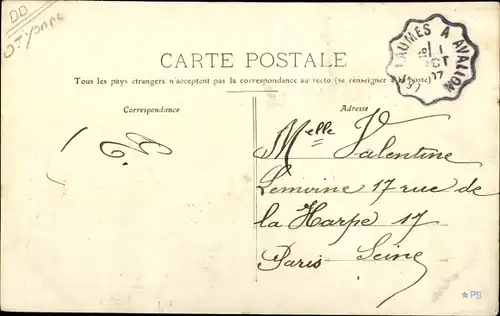 DD
CARTE POSTALE
Tous les pays étrangers n'acceptent pas la correspondance au recto (se renseigner à la poste)
LES LAUMES A AVALLON
1
OCT
07
Correspondance
Adresse
Melle Valentine
Lemoine 17 rue de
la Harpe 17
Paris Seine
*PB